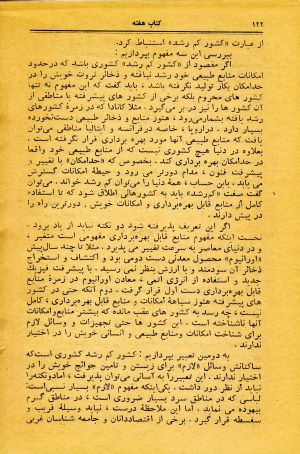 ۱۲۲ کتاب هفته
از عبارت «کشور کم رشد» استنباط کرد.
بپررسی این سه مفهوم بپردازیم :
اگر مقصود از «کشور کم رشد» کشوری باشد که درحدود
امکانات منابع طبیعی خود رشد نیافته و ذخائر ثروت خویش را در
حدامکان بکار تولید نگرفته باشد ، باید گفت که این مفهوم نه تنها
کشور های محروم بلکه برخی از کشور های پیشرفته با مناطقی از
آن کشور ها را نیز در بر می‌گیرد . مثلا کانادا که در زمرۀ کشورهای
رشد یافته بشمارمی‌رود ، هنوز منابع و ذخائر طبیعی دست‌نخورده
بسیار دارد . در اروپا ، خاصه درفرانسه و ایتالیا مناطقی می‌توان
یافت که منابع طبیعی آنها مورد بهره برداری قرار نگرفته است .
بعلاوه در دنیا هیچ کشوری نیست که از منابع طبیعی خود واقعا
در حدامکان بهره برداری کند . بخصوص که «حدامکان» با تغییر و
پیشرفت فنون ، مدام دورتر می رود و حیطۀ امکانات گسترش
می یابد . باین حساب ، همۀ دنیا را می‌توان کم رشد خواند . می‌توان
گفت صفت «کم‌رشد» باید به کشورهائی اطلاق شود که تا استفاده
کامل از منابع قابل بهره‌برداری و امکانات خویش ، دورترین راه را
در پیش دارند .
اگر این تعریف پذیرفته شود دو نکته نباید از یاد برود .
نخست اینکه مفهوم منابع قابل بهره‌برداری مفهومی است متغیر ،
و در دنیای معاصر به سرعت تغییر می پذیرد . مثلا چند سال‌پیش
«اورانیوم» محصول معدنی دست دومی بود و اکتشاف و استخراج
ذخائر آن سودمند و با ارزش بنظر نمی رسید . با پیشرفت فیزیک
جدید و استفاده از انرژی اتمی ، معادن اورانیوم در زمرۀ منابع
قابل بهره‌برداری دست اول قرار گرفت . دوم آنکه حتی در کشور
های پیشرفته هنوز سیاهۀ امکانات و منابع قابل بهره‌برداری ، کامل
نیست ، چه رسد به کشور های عقب مانده که بیشتر منابع‌و امکانات
آنها ناشناخته است . این کشور ها حتی تجهیزات و وسائل لازم
برای شناخت امکانات ومنابع طبیعی و انسانی خویش را در اختیار
ندارند.
به دومین تعبیر بپردازیم : کشور کم رشد کشوری است‌که
ساکنانش وسائل «لازم» برای زیستن و تامین حوائج خویش را در
اختیار ندارند . این تعبیررا به آسانی می‌توان پذیرفت ، امادونکته‌را
نباید از نظر دور داشت . یکی‌اینکه مفهوم «لازم» بسیار نسبی‌است:
لباسی که در مناطق سرد بسیار ضروری است ، در مناطق گرم
بیهوده می نماید . اما این ملاحظۀ درست ، نباید وسیلۀ فریب و
سفسطه قرار گیرد . برخی از اقتصاددانان و جامعه شناسان غربی